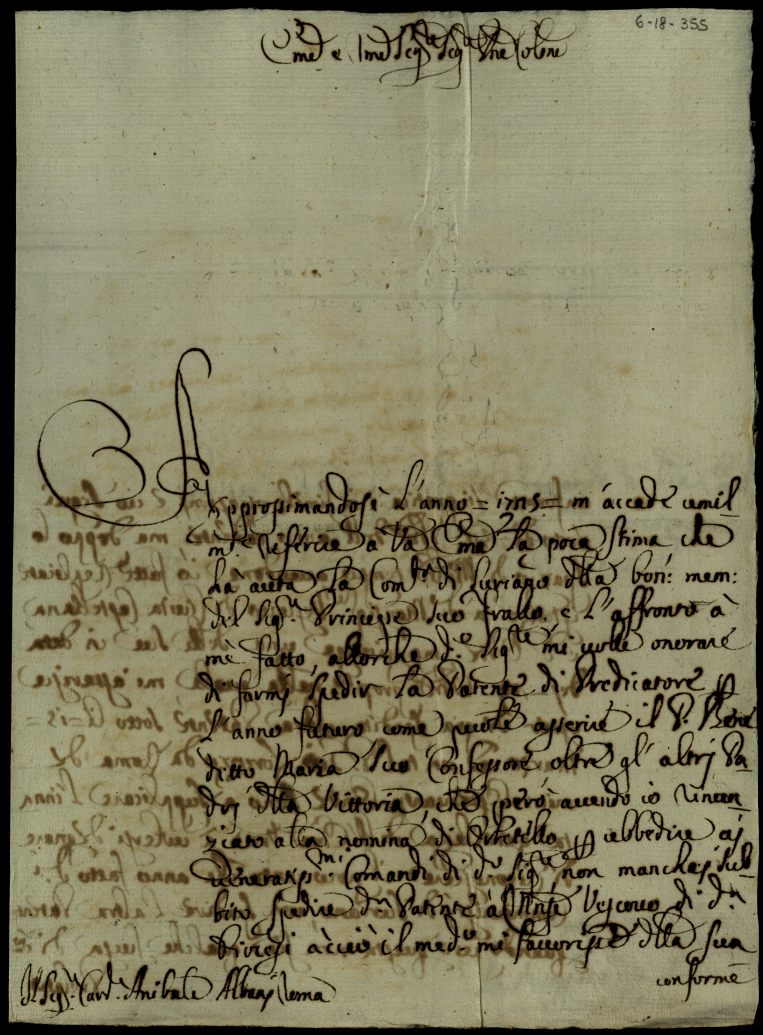 6-18-355
Em.º e R.mo Sig.re Sig.re P.ne Col.mo
Approssimandosi l'anno = 1715 = m'accade umil
m.te riferire à V.ra Em.za la poca stima che
hà avuta la Com.tà di della bon: mem:
del Sig.r Principe suo fratello, e l'affronto à
mè fatto, allorche d.º Sig.re mi volle onorare
di farmi spedir la Patente di Predicatore p
l'anno futuro come puole asserire il P. Bene
ditto Maria suo Confessore oltre gl'altri Pa
dri della Vittoria, che però avendo io rinun
ziato alla nomina di p ubbedire ai
veneratiss.mi Comandi di d.º Sig.re non mancai sub
bito spedire d.ª Patente al Vescovo di d.ª
Diocesi acciò il med.º mi favorisse della sua
conforme
Sig.r Card. Anibale Albani Roma